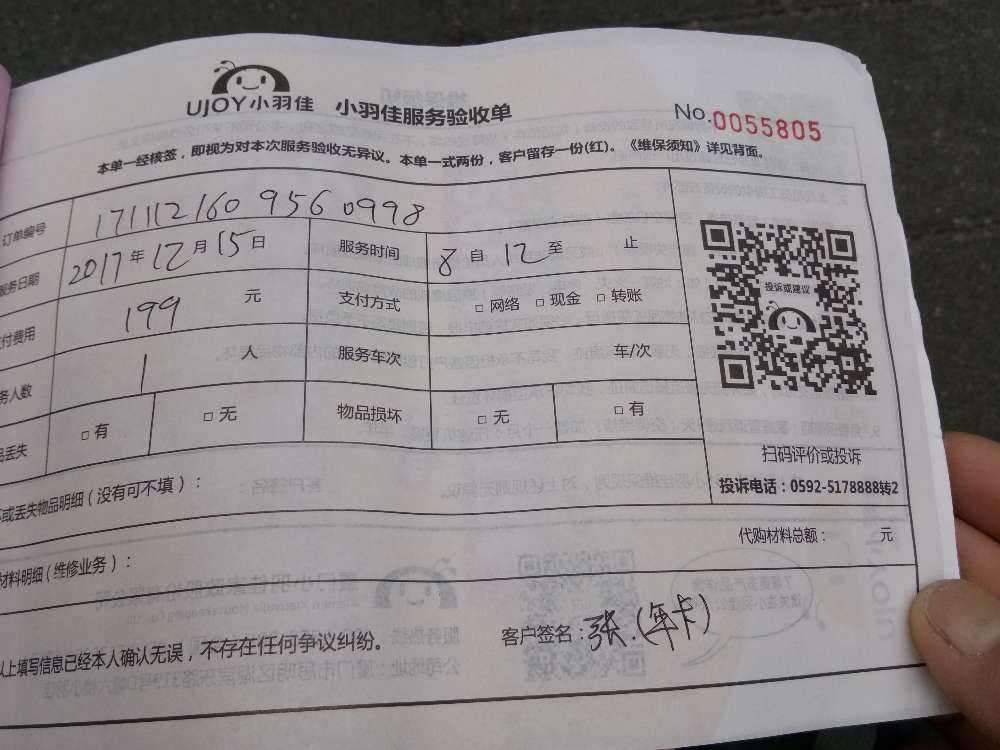 UJOY小羽佳 小羽佳服务验收单 No.0055805
本单一经核签，即视为对本次服务验收无异议。本单一式两份，客户留存一份(红)。《维保须知》详见背面。
订单编号 171112160 956 0998
服务日期 2017年12月15日 服务时间 8自12至 止
付费用 199 元 支付方式 □网络 □现金 □转账
务人数 1 人 服务车次 车/次
品丢失 □有 □无 物品损坏 □无 □有
投诉或建议
扫码评价或投诉
投诉电话：0592-5178888转2
坏或丢失物品明细(没有可不填)：
代购材料总额： 元
材料明细(维修业务)：
以上填写信息已经本人确认无误，不存在任何争议纠纷。 客户签名：张.(年卡)